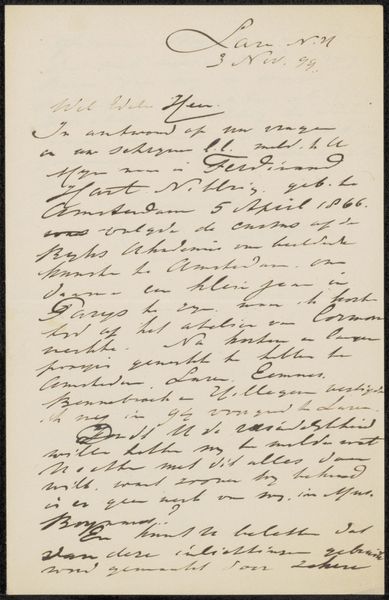 Laren N.H
3 Nov. 99.
Wel Edele Heer.
In antwoord op uw vragen
in uw schrijven l.l. meld ik U
Mijn naam is Ferdinand
Hart Nibbrig, geb. te
Amsterdam 5 April 1866.
volgde de cursus op de
Rijks Akademie van beeldende
kunsten te Amsterdam, om
daarna een klein jaar in
Parys te zyn, waar ik kort
tyd op het atelier van Cormon
werkte. Na korten en langen
poozen gewerkt te hebben te
Amsterdam, Laren, Eemnes,
Bennebroek en Hillegom vestigde
ik mij in 94 voorgoed te Laren.
Zoudt U de vriendelijkheid
willen hebben my te melden wat
U echter met dit alles doen
wilt. want zoover my bekend
is er geen werk van my in Mus.
Boymans?
En kunt U beletten dat
van deze inlichtingen gebruik
word gemaakt door zekere